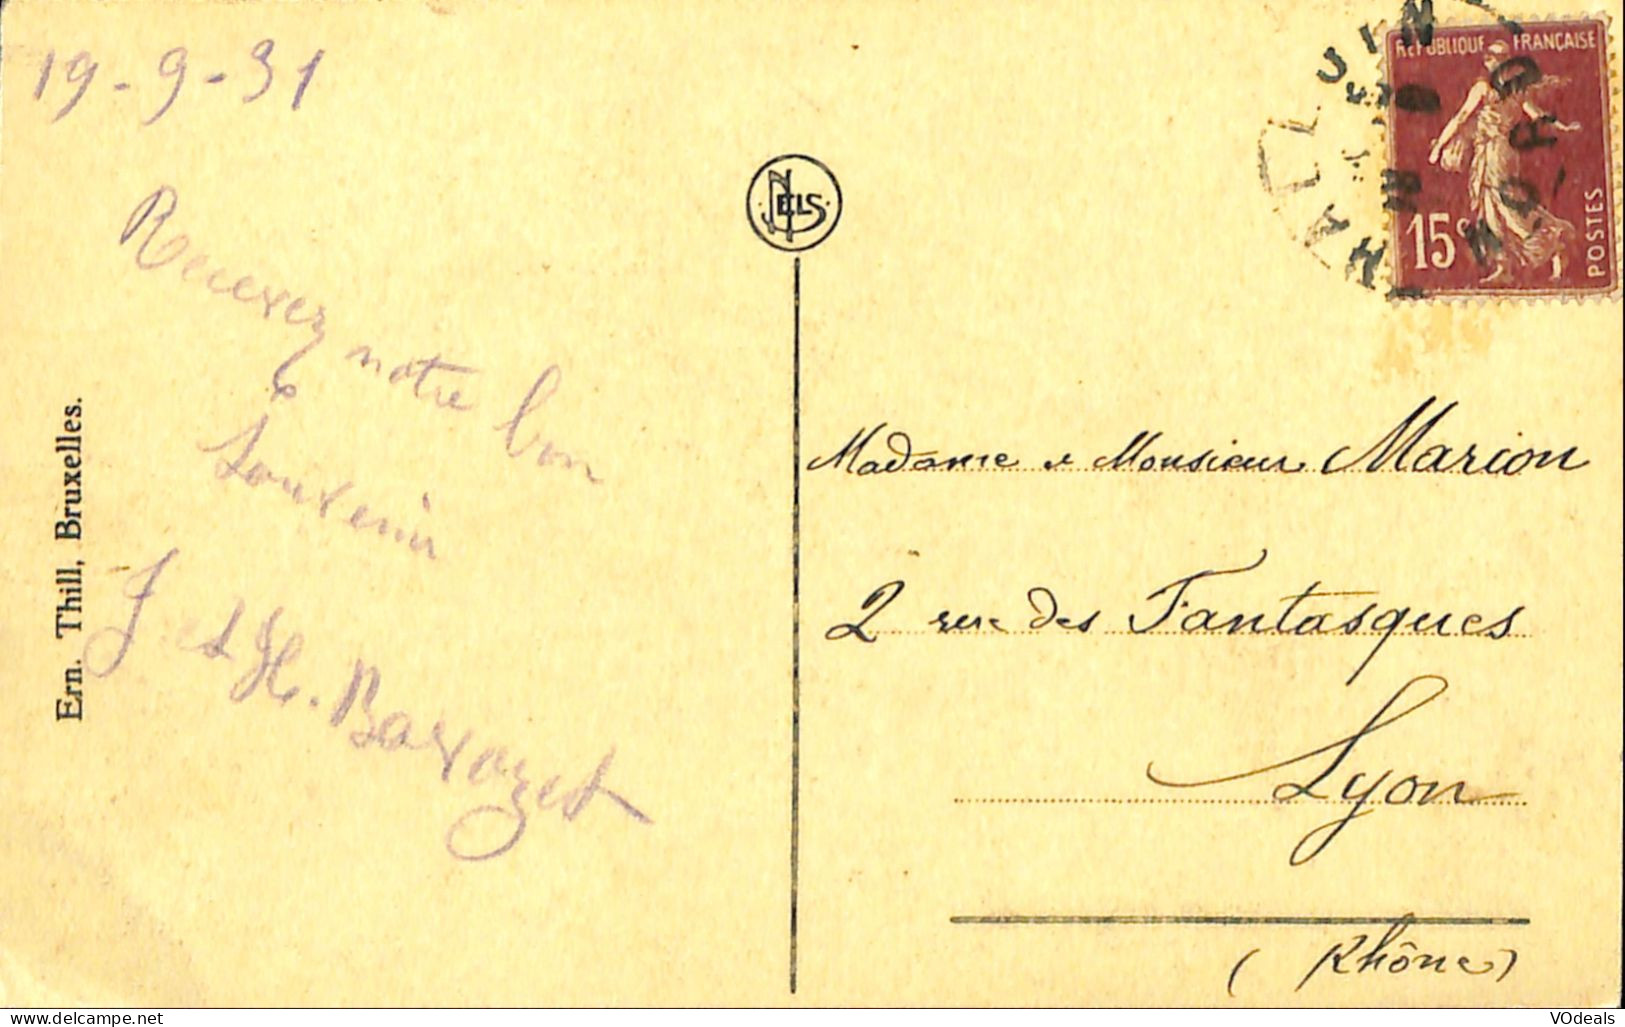 19-9-31
Recevez notre bon
Souvenir
J et H. Barozet
Ern. Thill, Bruxelles.
NELS
REPUBLIQUE FRANÇAISE
15c
POSTES
HALLUIN
NORD
Madame & Monsieur Marion
2 rue des Fantasques
Lyon
(Rhône)
delcampe.net
VOdeals